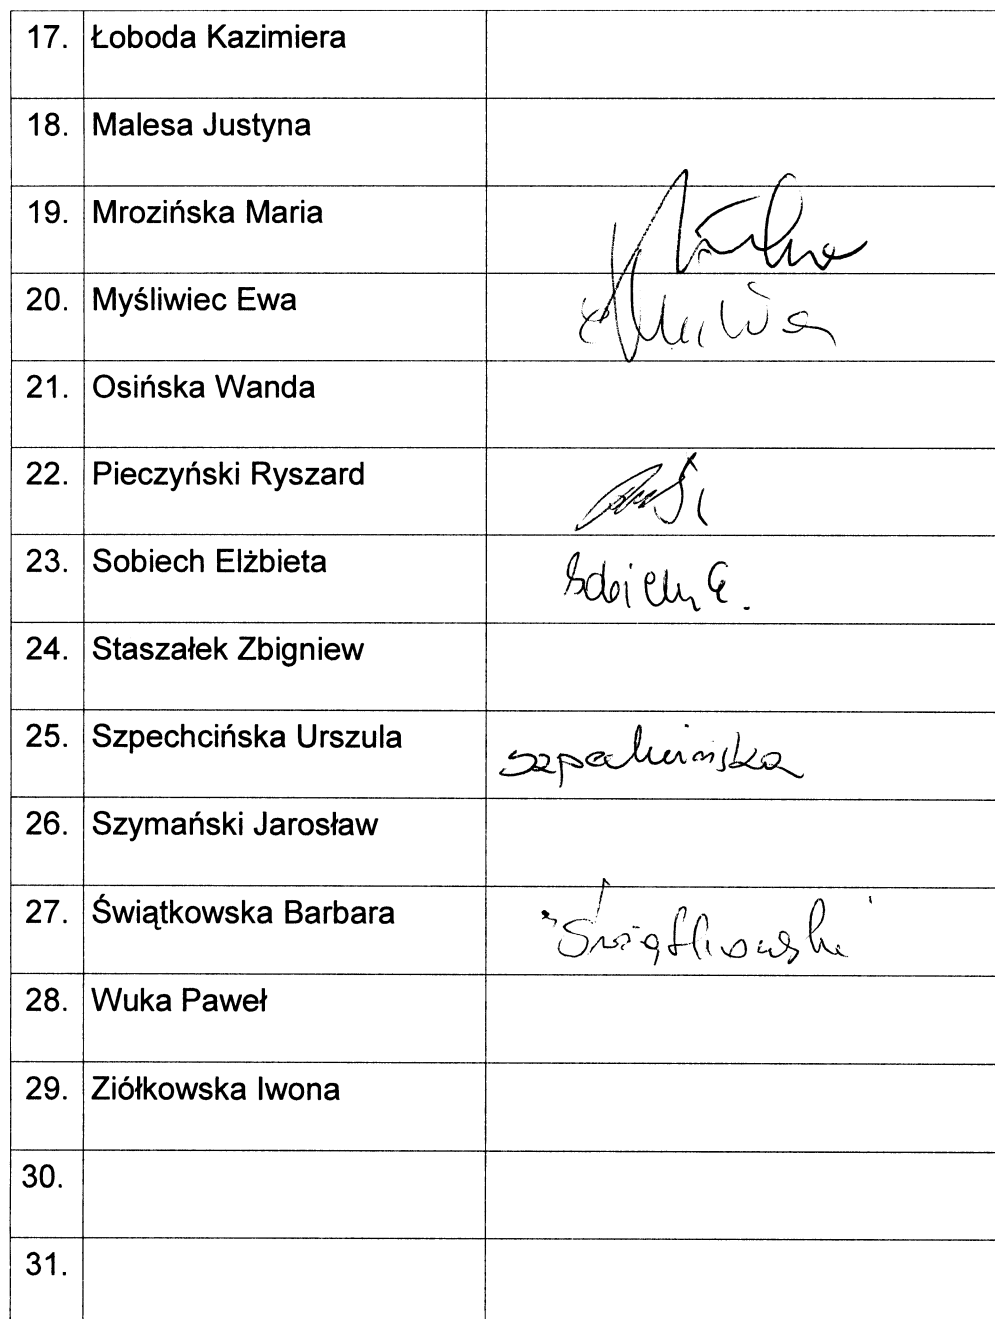 17. Łoboda Kazimiera
18. Malesa Justyna
19. Mrozińska Maria
20. Myśliwiec Ewa
21. Osińska Wanda
22. Pieczyński Ryszard
23. Sobiech Elżbieta Sobiech E.
24. Staszałek Zbigniew
25. Szpechcińska Urszula
26. Szymański Jarosław
27. Świątkowska Barbara
28. Wuka Paweł
29. Ziółkowska Iwona
30.
31.